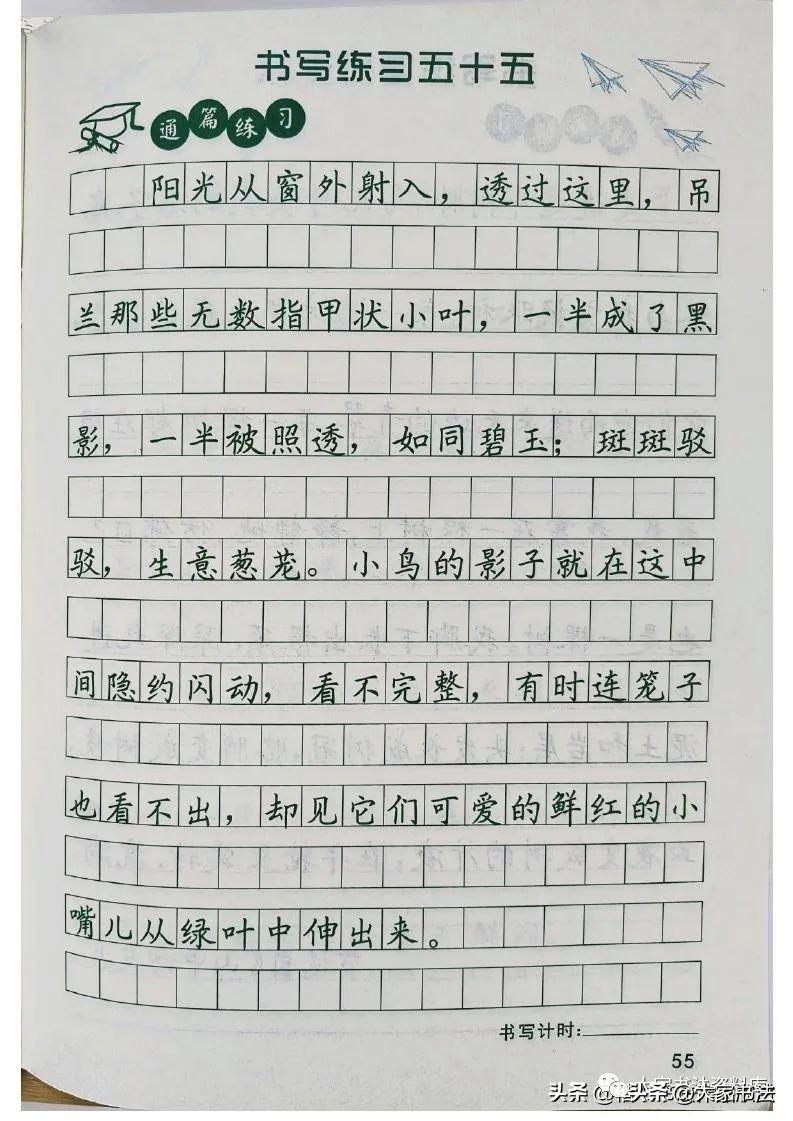 书写练习五十五
通篇练习
阳光从窗外射入，透过这里，吊
兰那些无数指甲状小叶，一半成了黑
影，一半被照透，如同碧玉；斑斑驳
驳，生意葱茏。小鸟的影子就在这中
间隐约闪动，看不完整，有时连笼子
也看不出，却见它们可爱的鲜红的小
嘴儿从绿叶中伸出来。
书写计时：
55
头条@大家书法